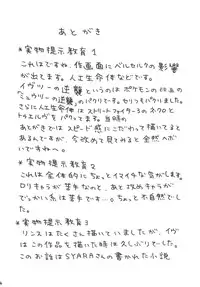 あとがき
*実物提示教育 1
これはですね、作画面にベルセルクの影響
が出てます。人工生命体などです。
イヴリーの逆襲というのはポケモンの作品の
「ミュウツーの逆襲」のパクリです。セリフもパクりました。
さらに人工生命体はストリートファイター3のネクロ
とトゥエルヴもパクってます。当時の
あとがきではスピード感にこだわって描いてると
あるんですが、今改めて見てみると全然ヘボ
いですネ〜。
*実物提示教育 2
これは全体的にちとイマイチな感がします。
ロリキャラが苦手なのと、あと攻めキャラがで
でっかい系は苦手です…。ちっと不自然でし
た。
*実物提示教育 3
リンスはたくさん描いていましたが、イヴは
はこの作品を描いた時は久しぶりでした。
このお話はSYARAさんの書かれた小説